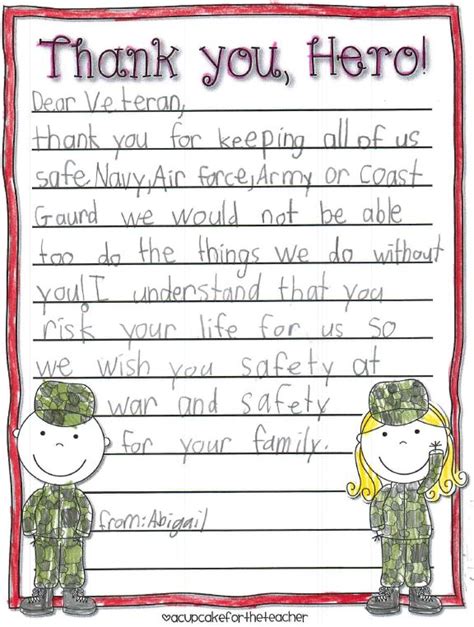 Thank you, Hero!
Dear Veteran,
thank you for keeping all of us
safe Navy, Air force, Army or Coast
Gaurd we would not be able
too do the things we do without
you! I understand that you
risk your life for us so
we wish you safety at
war and safety
for your family.
from: Abigail
acupcakefortheteacher